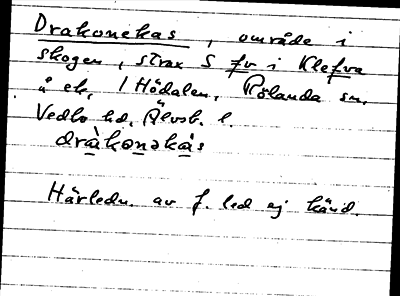 Drakonekas, område i
skogen, strax S fv i Klefva
å ek, i Hödalen, Rölanda sn,
Vedbo hd, Älvsb. l.
dràkonəkàs
Härledn. av f. led ej känd.